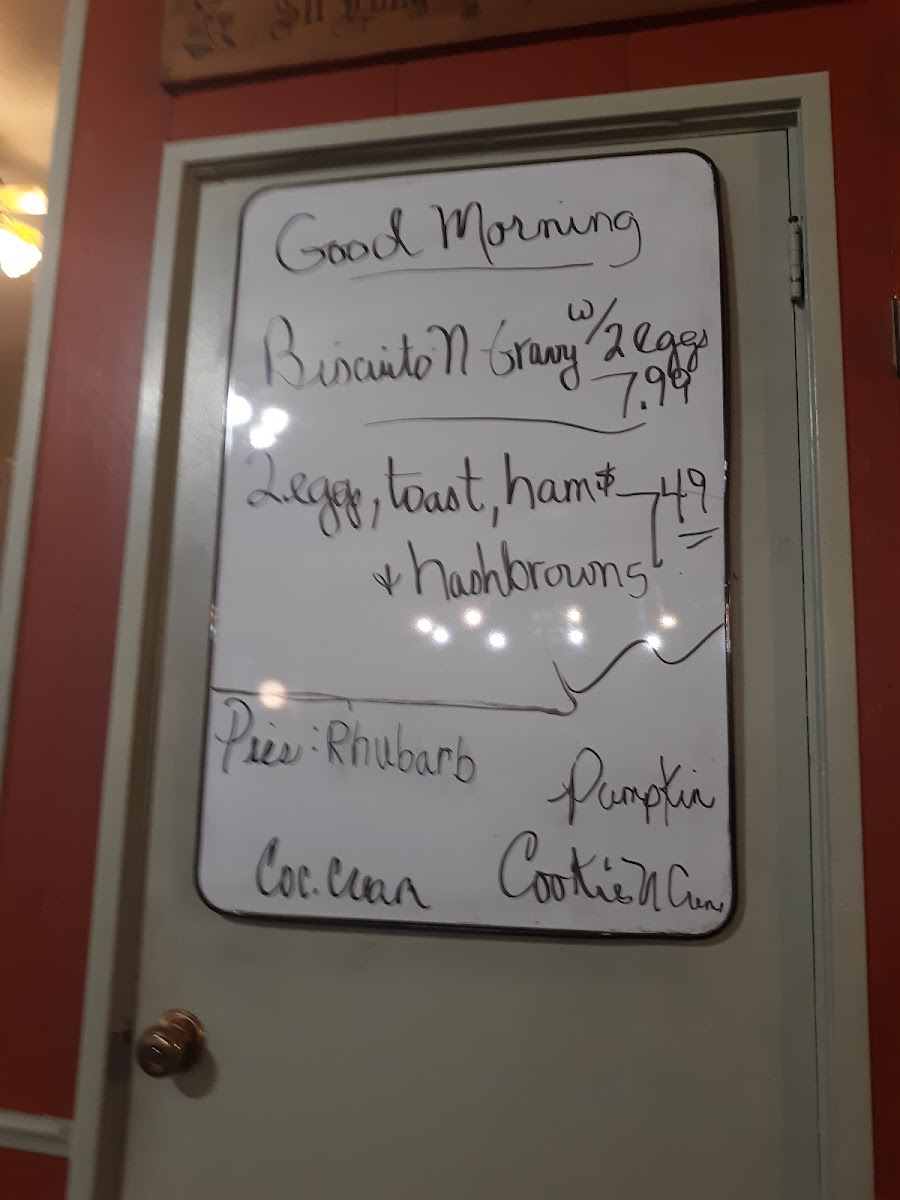 Good Morning
Biscuits N Gravy w/2 eggs
7.99
2 eggs, toast, ham $7.49
& hashbrowns
Pies: Rhubarb
Pumpkin
Coc. Cream
Cookies N Creme